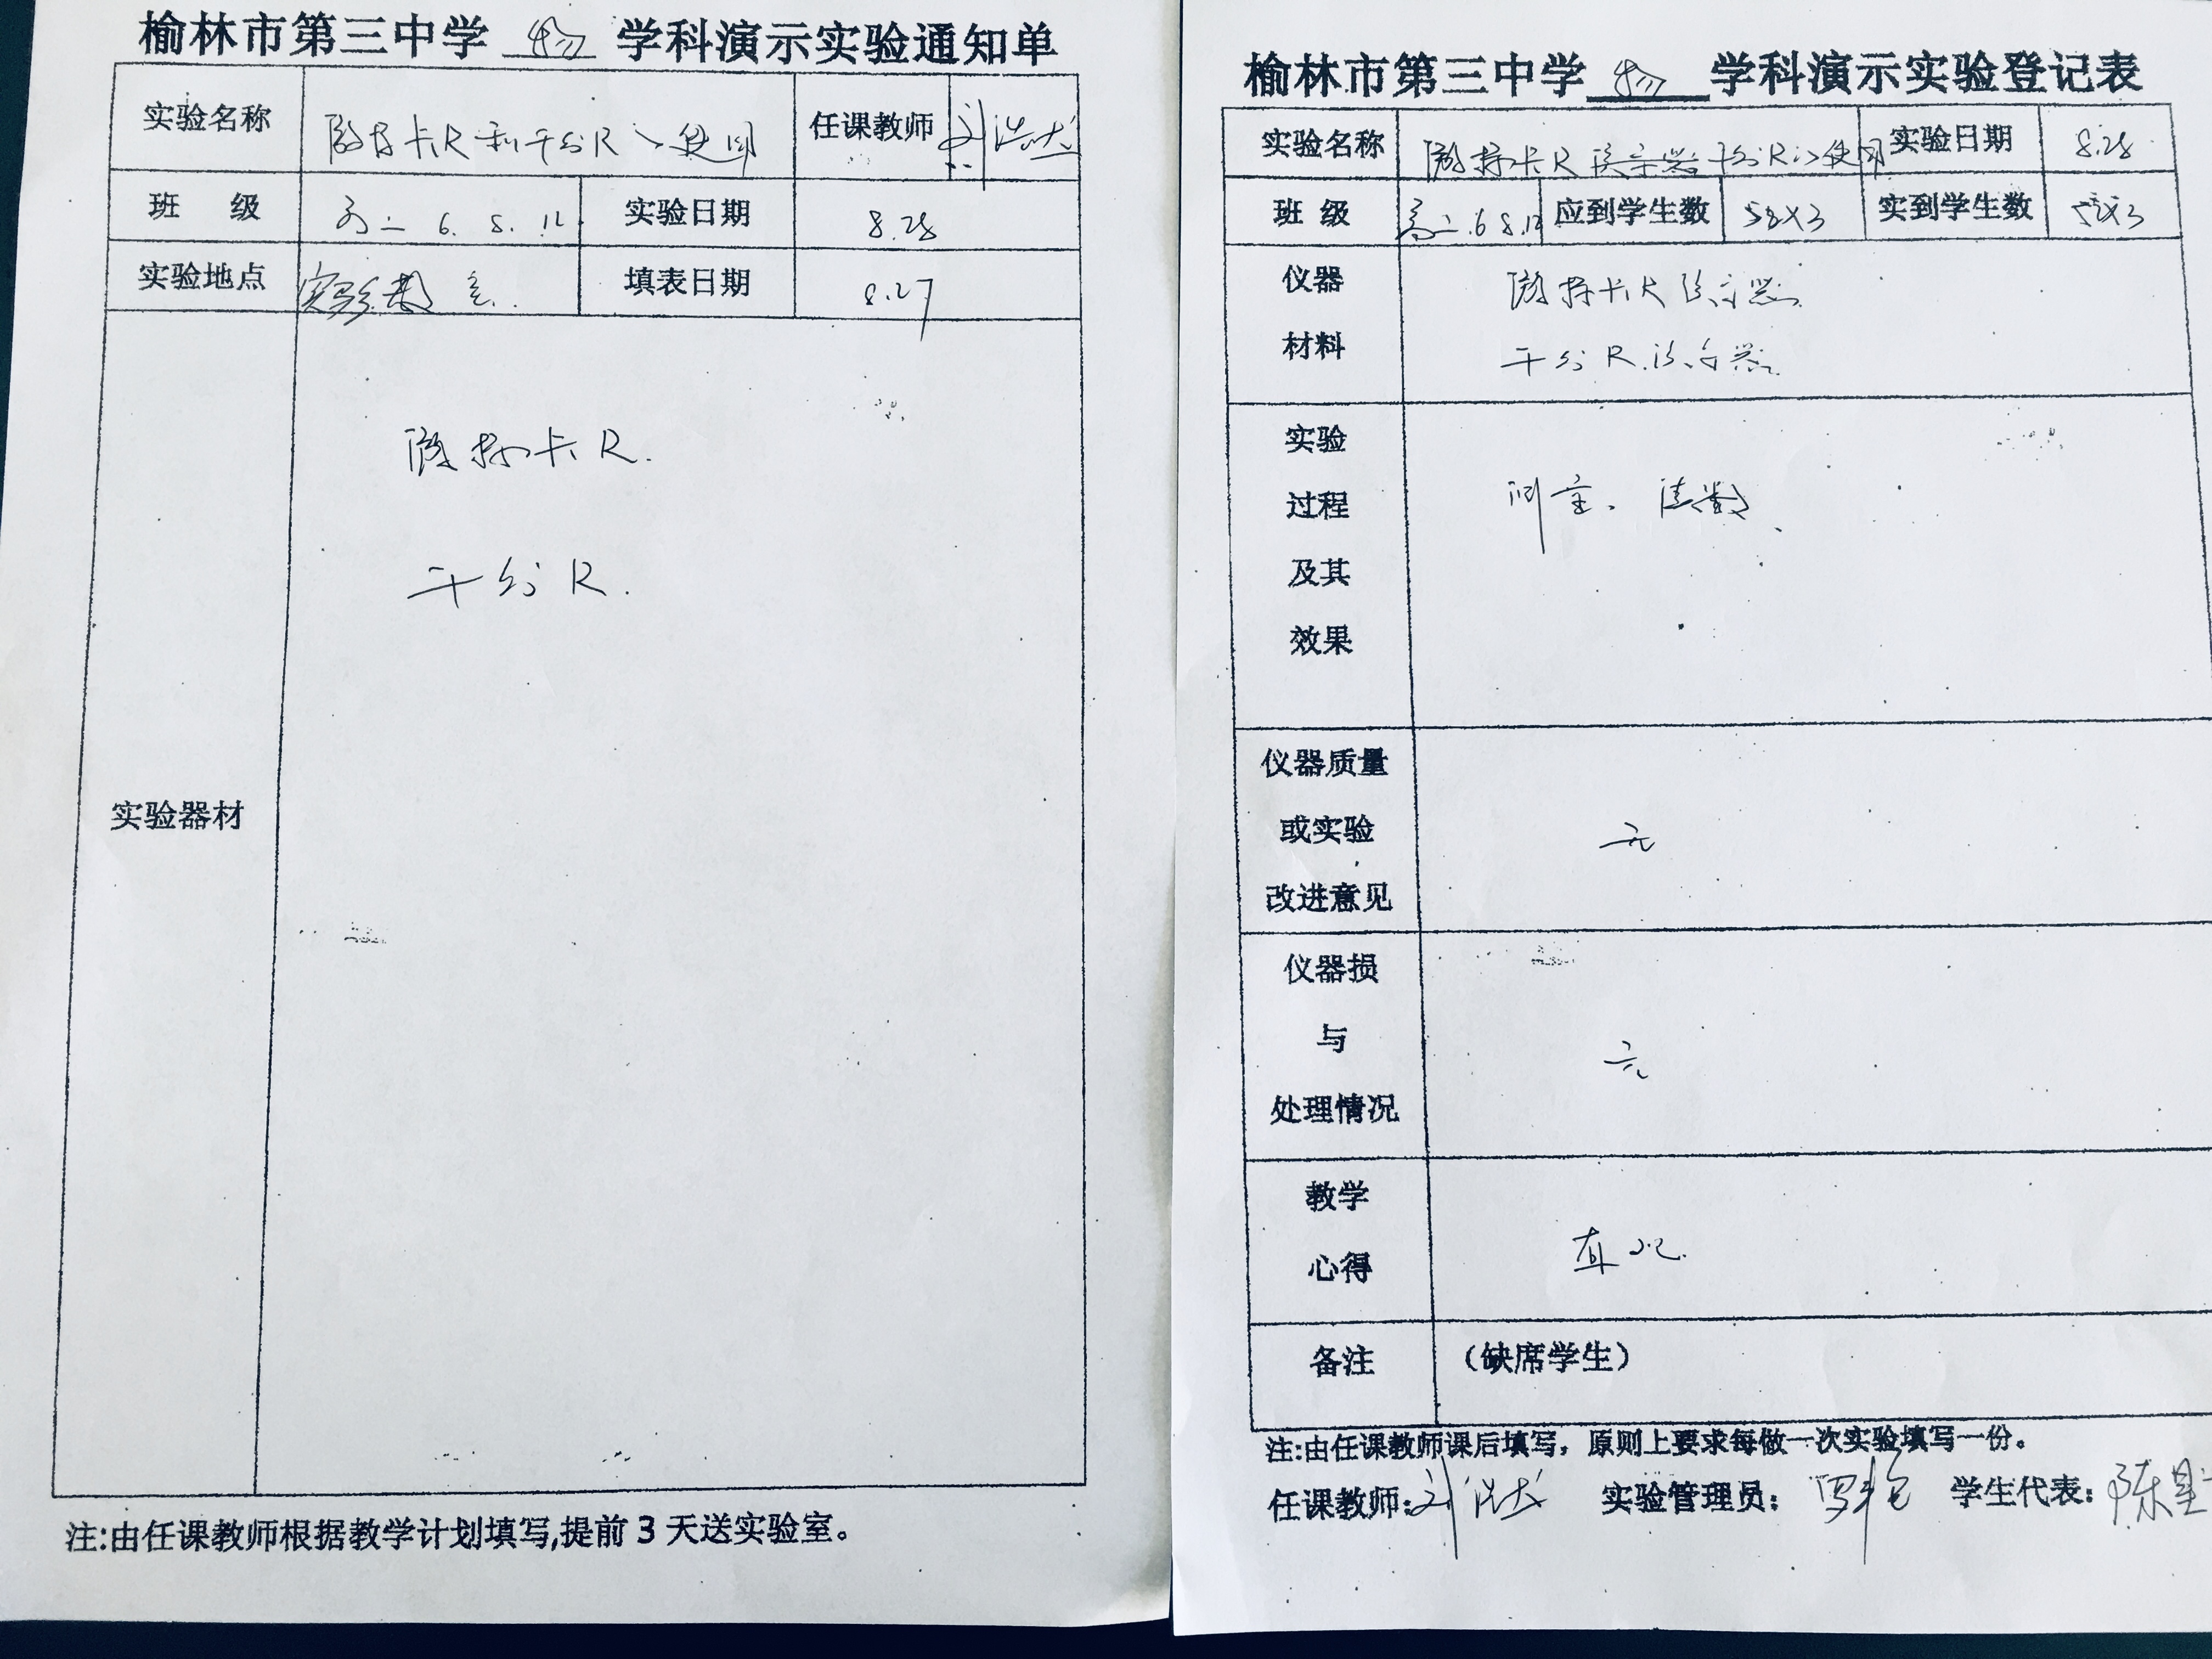 榆林市第三中学 物 学科演示实验通知单
实验名称 游标卡尺和千分尺的使用 任课教师 刘浩龙
班 级 高二 6. 8. 12 实验日期 8.28
实验地点 实验室 填表日期 8.27
实验器材
游标卡尺.
千分尺.
注:由任课教师根据教学计划填写,提前3天送实验室。
榆林市第三中学 物 学科演示实验登记表
实验名称 游标卡尺 千分尺的使用 实验日期 8.28
班 级 高二.6 8.12 应到学生数 58×3 实到学生数 58×3
仪器
材料
游标卡尺演示器
千分尺演示器
实验
过程
及其
效果
测量. 读数
仪器质量
或实验
改进意见
无
仪器损
与
处理情况
无
教学
心得
直观.
备注 （缺席学生）
注:由任课教师课后填写，原则上要求每做一次实验填写一份。
任课教师: 刘浩龙 实验管理员: 学生代表: 陈